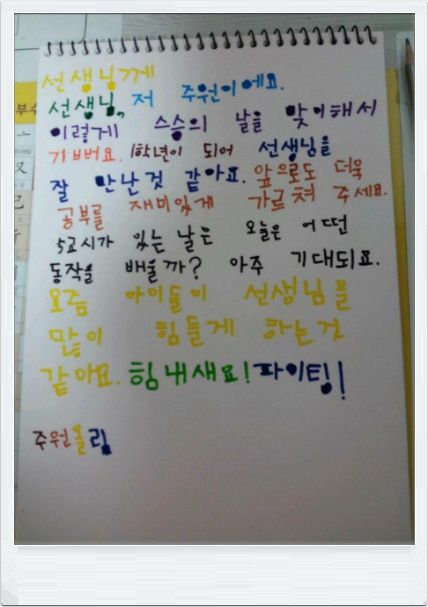 선생님께
선생님, 저 주원이에요.
이렇게 스승의 날을 맞이해서
기뻐요. 1학년이 되어 선생님을
잘 만난것 같아요. 앞으로도 더욱
공부를 재미있게 가르쳐 주세요.
5교시가 있는 날은 오늘은 어떤
동작을 배울까? 아주 기대되요.
요즘 아이들이 선생님을
많이 힘들게 하는것
같아요. 힘내새요! 파이팅!
주원올림
부수